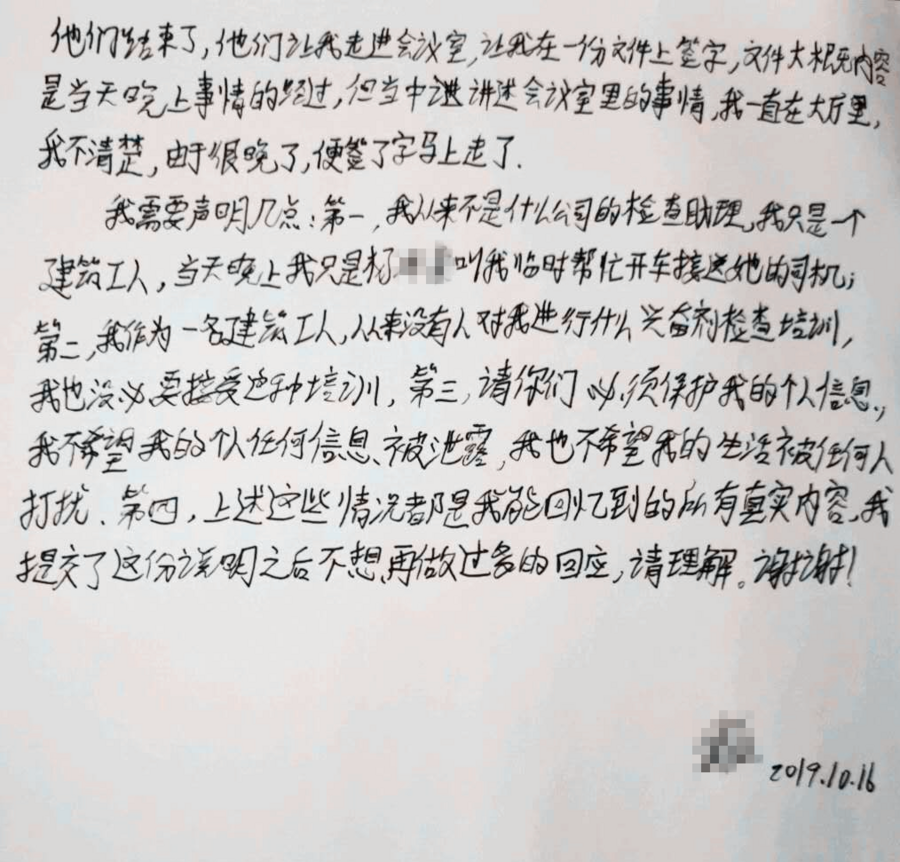 他们结束了，他们让我走进会议室，让我在一份文件上签字，文件大概内容
是当天晚上事情的经过，但当中讲述会议室里的事情，我一直在大厅里，
我不清楚，由于很晚了，便签了字马上走了.
我需要声明几点：第一，我从来不是什么公司的检查助理，我只是一个
建筑工人，当天晚上我只是杨 叫我临时帮忙开车接送她的司机；
第二，我作为一名建筑工人，从来没有人对我进行什么兴奋剂检查培训，
我也没必要接受这种培训，第三，请你们必须保护我的个人信息，
我不希望我的个人任何信息被泄露，我也不希望我的生活被任何人
打扰、第四，上述这些情况都是我能回忆到的所有真实内容，我
提交了这份说明之后不想再做过多的回应，请理解。谢谢！
2019.10.16